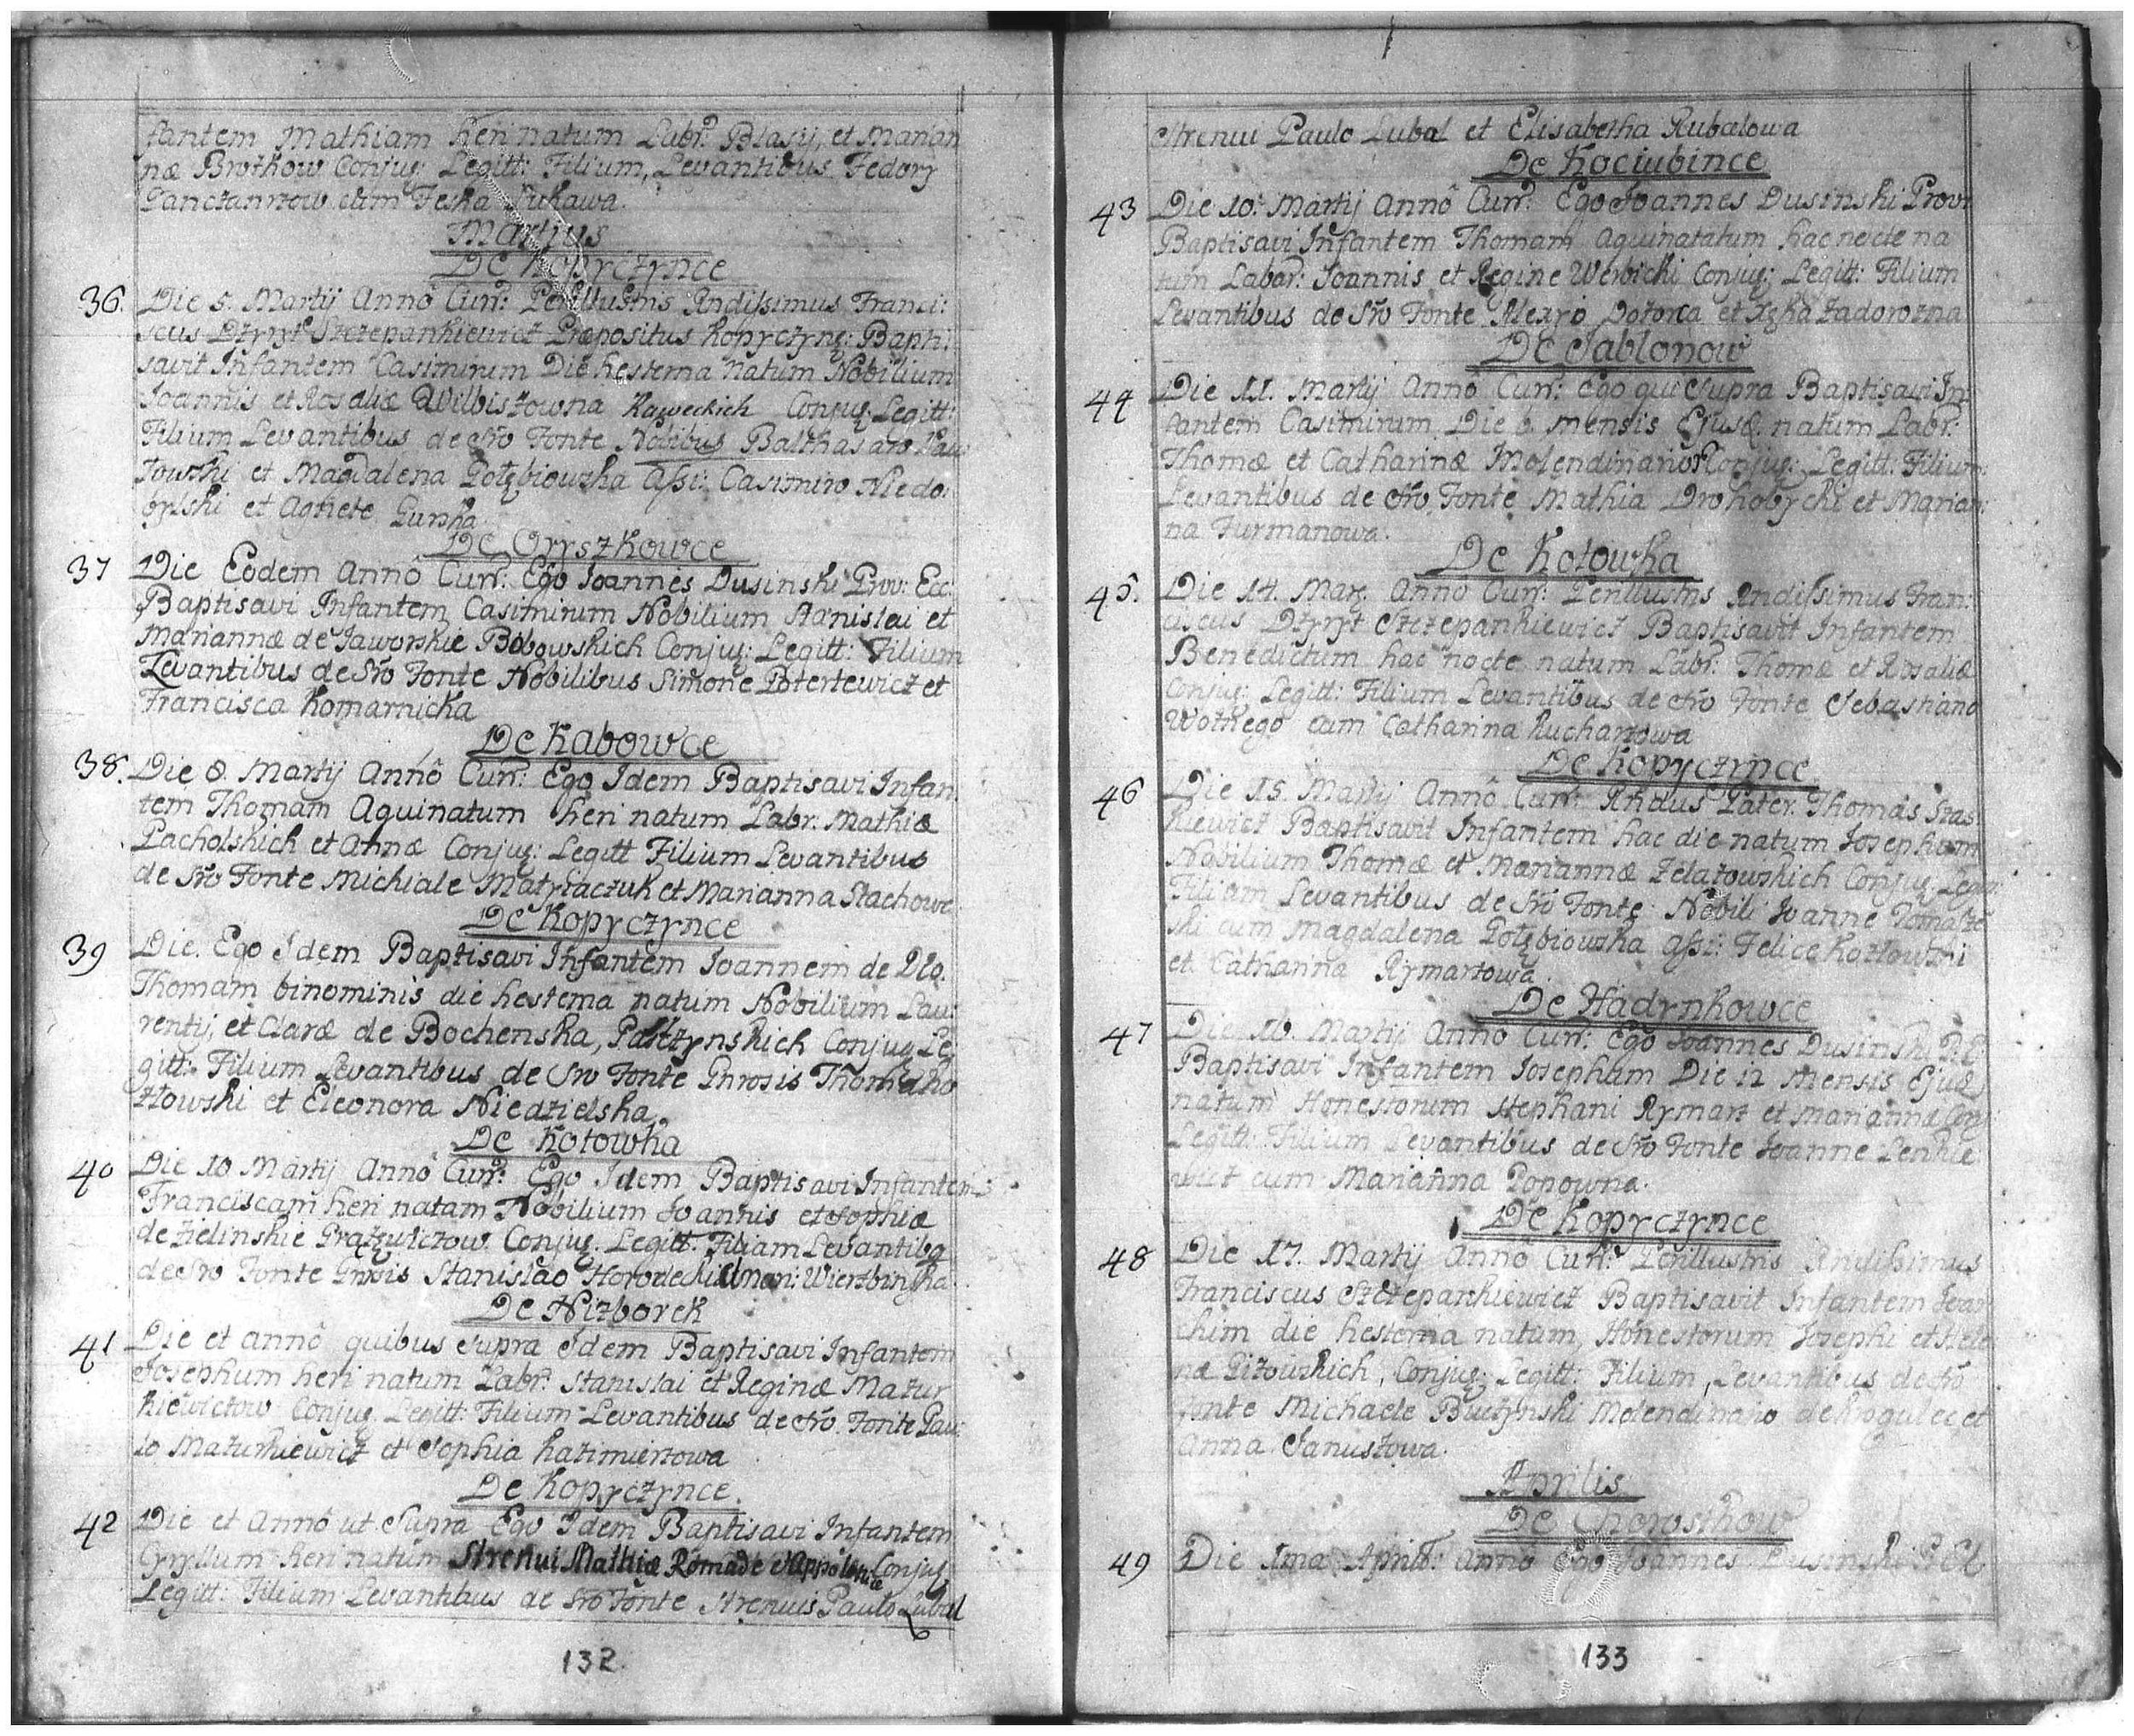 fantem Mathiam heri natum Labr: Blasij, et Marian
næ Brozkow Conjug: Legitt: Filium, Levantibus Fedory
cum Feska
Martius
De Kopyczynce
36. Die 5. Martij Annô Curr: Perillustris Rndissimus Franci:
scus Dzyryt Szczepankiewicz Præpositus Kopyczyng: Bapti
savit Infantem Casimirum Die hesterna natum Nobilium
Joannis et Rosaliæ Wilbiszowna Raweckich Conjug: Legitt:
Filium Levantibus de Sro Fonte Nobibus Balthasaro Paw
łowski et Magdalena Gołębiowska Assi: Casimiro Niedo:
bylski et Agnete
De Oryszkowce
37 Die Eodem Annô Curr: Ego Joannes Dusinski Prov: Ecc:
Baptisavi Infantem Casimirum Nobilium Stanislai et
Mariannæ de Jaworskie Bobowskich Conjug: Legitt: Filium
Levantibus de Sro Fonte Nobilibus Simone et
Francisca Komarnicka
De Kabowce
38. Die 8. Martij Annô Curr: Ego Idem Baptisavi Infan
tem Thomam Aquinatum heri natum Labr. Mathiæ
Pacholskich et Annæ Conjug: Legitt Filium Levantibus
de Sro Fonte Michiale et Marianna Stachowa
De Kopyczynce
39 Die. Ego Idem Baptisavi Infantem Joannem de Deo.
Thomam binominis die hesterna natum Nobilium Lau:
rentij, et Claræ de Bochenska, Conjug: Le
gitt: Filium Levantibus de Sro Fonte Gnrosis Thoma Ko
złowski et Eleonora Niedzielska.
De Kotowka
40 Die 10 Martij Annô Curr: Ego Idem Baptisavi Infantem
Franciscam heri natam Nobilium Joannis et Sophiæ
de Zielinskie Conjug. Legitt. Filiam Levantibq
de Sro Fonte Stanislao Horodecki Mari:
De Nizborek
41 Die et annô quibus supra Idem Baptisavi Infantem
Josephum heri natum Labr: Stanislai et Reginæ Mazur
kiewiczow Conjug. Legitt: Filium Levantibus de Sro Fonte Pau:
lo Mazurkiewicz et Sophia Kazimierzowa
De Kopyczynce.
42 Die et Annô ut Supra Ego Idem Baptisavi Infantem
Cyryllum heri natum Strenui Mathiæ Romade et Appoloniæ Conjug
Legitt: Filium Levantibus de Sro Fonte Strenuis Paulo Lubal
132.
Strenui Paulo Lubal et Elisabetha Rubalowa
De Kociubince
43 Die 10: Martij Annô Curr: Ego Joannes Dusinski Prov:
Baptisavi Infantem Thomam Aquinatatum hac nocte na
tum Labor: Joannis et Regine Werbicki Conjug: Legitt: Filium
Levantibus de Sro Fonte Alexyo et Zadorozna
De Jablonow
44 Die 11. Martij Annô Curr: Ego qui Supra Baptisavi In
fantem Casimirum Die 6. mensis Ejusd. natum Labr:
Thomæ et Catharinæ Molendinarior Conjug: Legitt: Filium:
Levantibus de Sro Fonte Mathia Drohobycki et Marian:
na Furmanowa.
De Kotowka
45. Die 14. Mar. Annô Curr: Perillustris Rndissimus Fran:
ciscus Dzyryt Szczepankiewicz Baptisavit Infantem
Benedictum hac nocte natum Labr: Thomæ et Rosaliæ
Conjug: Legitt: Filium Levantibus de Sro Fonte Sebastiano
cum Catharina Kucharzowa
De Kopyczynce
46 Die 15. Martij Annô Curr: Rndus Pater Thomas Stas
kiewicz Baptisavit Infantem hac die natum Josephum
Nobilium Thomæ et Mariannæ Conjug: Legit:
Filium Levantibus de Sro Fonte Nobili Joanne
ski cum Magdalena Gołębiowska Assi: Felice Kozłowski
et Catharina Rymarzowa.
De Hadynkowce
47 Die 16. Martij Annô Curr: Ego Joannes Dusinski P: E
Baptisavi Infantem Josephum Die 12 mensis Ejusd
natum Honestorum Stephani Rymarz et Mariannæ Conj
Legitt: Filium Levantibus de Sro Fonte Joanne Lenkie
wicz cum Marianna Popowna.
De Kopyczynce
48 Die 17. Martij Annô Curr: Perillustris Rndissimus
Franciscus Szczepankiewicz Baptisavit Infantem Joa
chim die hesterna natum, Honestorum Josephi et Hele
næ Conjug: Legitt: Filium, Levantibus de Sro
Fonte Michaele Buczynski Molendinario de Rogulec et
Anna Januszowa.
Aprilis
De Chorostkow
49 Die 1ma Aprill: Annô Ego Joannes Dusinski P. E
133